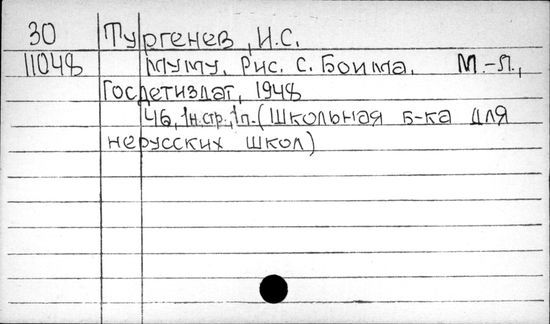 30 Тургенев, И.С.
11048 Муму. Рис. С. Боима. М.-Л.,
Госдетиздат, 1948
46, 1н.стр., 1л. (Школьная б-ка для
нерусских школ)